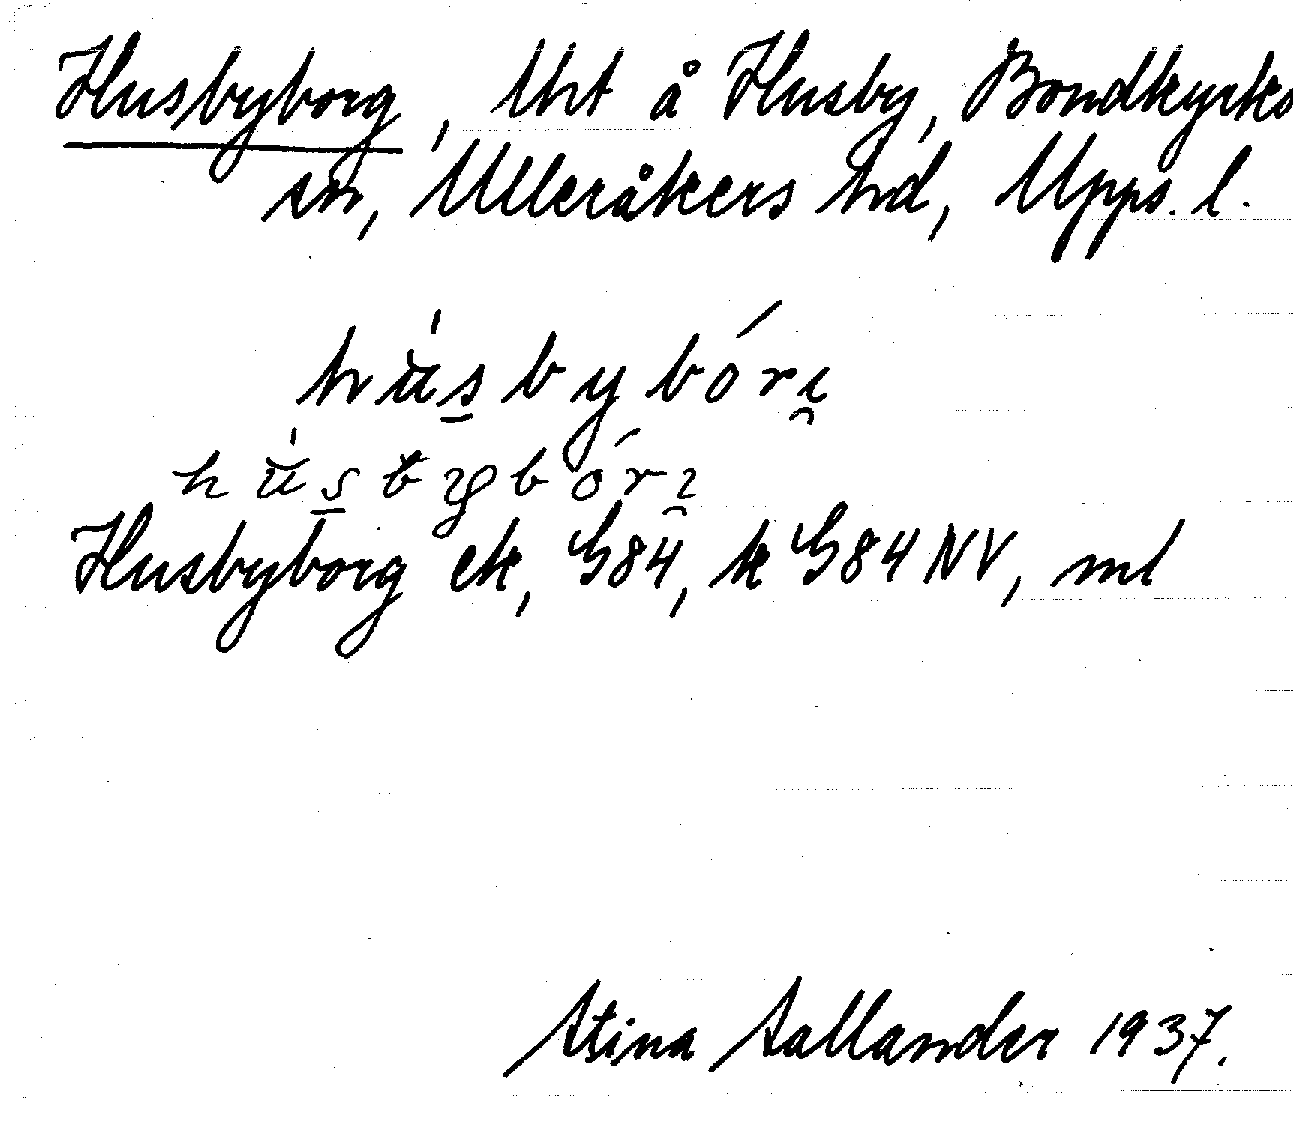 Husbyborg, Uht å Husby, Bondkyrko
sn, Ulleråkers hd, Upps. l.
hu̇́s̲ byborı̯
hu̇́s̲ bybórı̯
Husbyborg ek, G84, k G84 NV, ml
Stina Sallander 1937.